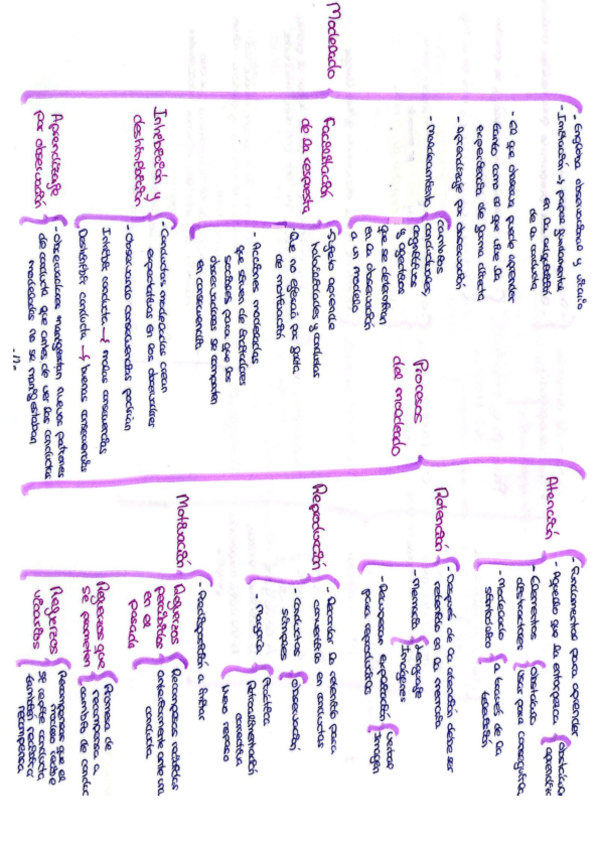 Modelado
- Engloba observacional y vicario
- Imitación → proceso fundamental
en la adquisición
de la conducta
- El que observa puede aprender
tanto como el que vive la
experiencia de forma directa
- Aprendizaje por observación
- Modelamiento
cambios
conductuales,
cognitivos
y afectivos
que se determinan
en la observación
a un modelo
Facilitación
de la respuesta
- Sujeto aprende
habilidades y conductas
que no ejecutó por falta
de motivación
- Acciones modeladas
que sirven de indicadores
sociales para que los
observadores se comporten
en consecuencia
Inhibición y
deshinibición
- Conductas modeladas crean
expectativas en los observadores
- Observando consecuencias podrían
Inhibir conducta → malas consecuencias
Deshinibir conducta → buenas consecuencias
Aprendizaje
por observación
- Observadores manifiestan nuevos patrones
de conducta que antes de ver las conductas
modeladas no se manifestaban
Procesos
del modelado
Atención
- Fundamental para aprender
- Aquello que la entorpece
obstáculo
aprendiz
- Elementos
distractores
obstáculo
para conseguirla
- Modelado
simbólico
a través de la
televisión
Retención
- Después de la atención debe ser
retenido en la memoria
- Memoria
Lenguaje
Imágenes
- Recuperar explicación
para reproducirla
verbal
Imagen
Reproducción
- Recordar lo retenido para
convertirlo en conductas
- Conductas
simples
observación
- Mayoría
Práctica
Retroalimentación
correctiva
Nuevo repaso
Motivación
- Predisposición a imitar
Refuerzos
percibidos
en el
pasado
Recompensas recibidas
anteriormente ante una
conducta
Refuerzos que
se prometen
Promesa de
recompensa a
cambio de conduc
Refuerzos
vicarios
Recompensa que el
modelo recibe
se repite conducta
también recibirá
recompensa